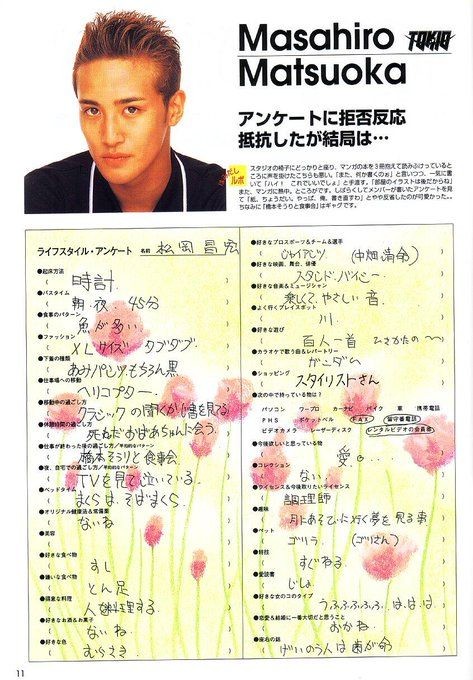 Masahiro TOKIO
Matsuoka
アンケートに拒否反応
抵抗したが結局は…
スタジオの椅子にどっかりと座り、マンガの本を3冊抱えて読みふけっているところに声を掛けたこちらも悪い。「また、何か書くのぉ」と言いつつ、一気に書いて「ハイ! これでいいでしょ」と手渡す。「部屋のイラストは後だからね」また、マンガに熱中。ところがです。しばらくしてメンバーが書いたアンケートを見て「紙、ちょうだい。やっぱ、俺、書き直すわ」とやや反省したのが可愛かった。ちなみに「橋本そうりと食事会」はギャグです。
ライフスタイル・アンケート 名前 松岡昌宏
●起床方法
時計
●バスタイム
朝・夜 45分
●食事のパターン
魚が多い
●ファッション
XLサイズ タブダブ
●下着の種類
あみパンツもちろん黒
●仕事場への移動
ヘリコプター
●移動中の過ごし方
クラシックの聞くか書を見る
●休憩時間の過ごし方
死んだおばあちゃんに会う
●仕事が終わった後の過ごし方/平均的なパターン
橋本そうりと食事会
●夜、自宅での過ごし方/平均的なパターン
TVを見て泣いている
●ベッドタイム
まくらは、そばまくら
●オリジナル健康法&常備薬
ないね
●美容
●好きな食べ物
すし
●嫌いな食べ物
とん足
●得意な料理
人を料理する
●好きなお酒&お菓子
ないね
●好きな色
むらさき
●好きなプロスポーツ&チーム&選手
ジャイアンツ (中畑清命)
●好きな映画、舞台、俳優
スタンド・バイミー
●好きな音楽&ミュージシャン
楽しくて、やさしい音
●よく行くプレイスポット
川
●好きな遊び
百人一首 ひさかたの〜
●カラオケで歌う曲&レパートリー
ガンダム
●ショッピング
スタイリストさん
●次の中で持っている物は?
パソコン ワープロ カーナビ バイク 車 携帯電話
PHS ポケットベル FAX 留守番電話
ビデオカメラ レーザーディスク レンタルビデオの会員券
●今後欲しいと思っている物
愛…
●コレクション
ない
●ライセンス&今後取りたいライセンス
調理師
●趣味
月にあそびに行く夢を見る事
●ペット
ゴリラ (ゴリさん)
●特技
すぐねる
●愛読書
じしょ
●好きな女のコのタイプ
うふふふふふ、はははは
●恋愛&結婚に一番大切だと思うこと
おかね
●座右の銘
げいのう人は歯が命
11